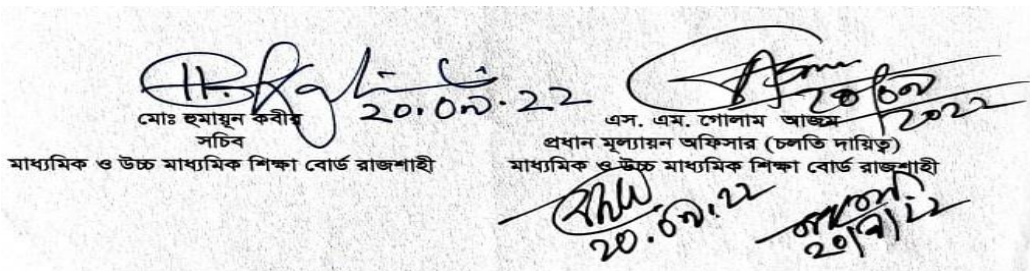 ২০.০৭.২২
মোঃ হুমায়ূন কবীর
সচিব
মাধ্যমিক ও উচ্চ মাধ্যমিক শিক্ষা বোর্ড রাজশাহী
২০/০৭
২০২২
এস. এম. গোলাম আজম
প্রধান মূল্যায়ন অফিসার (চলতি দায়িত্ব)
মাধ্যমিক ও উচ্চ মাধ্যমিক শিক্ষা বোর্ড রাজশাহী
২০.০৭.২২
২০/৭/২২